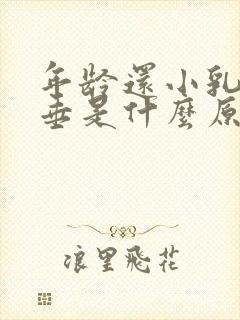 年齡還小乳
垂是什麼原
浪里飛花